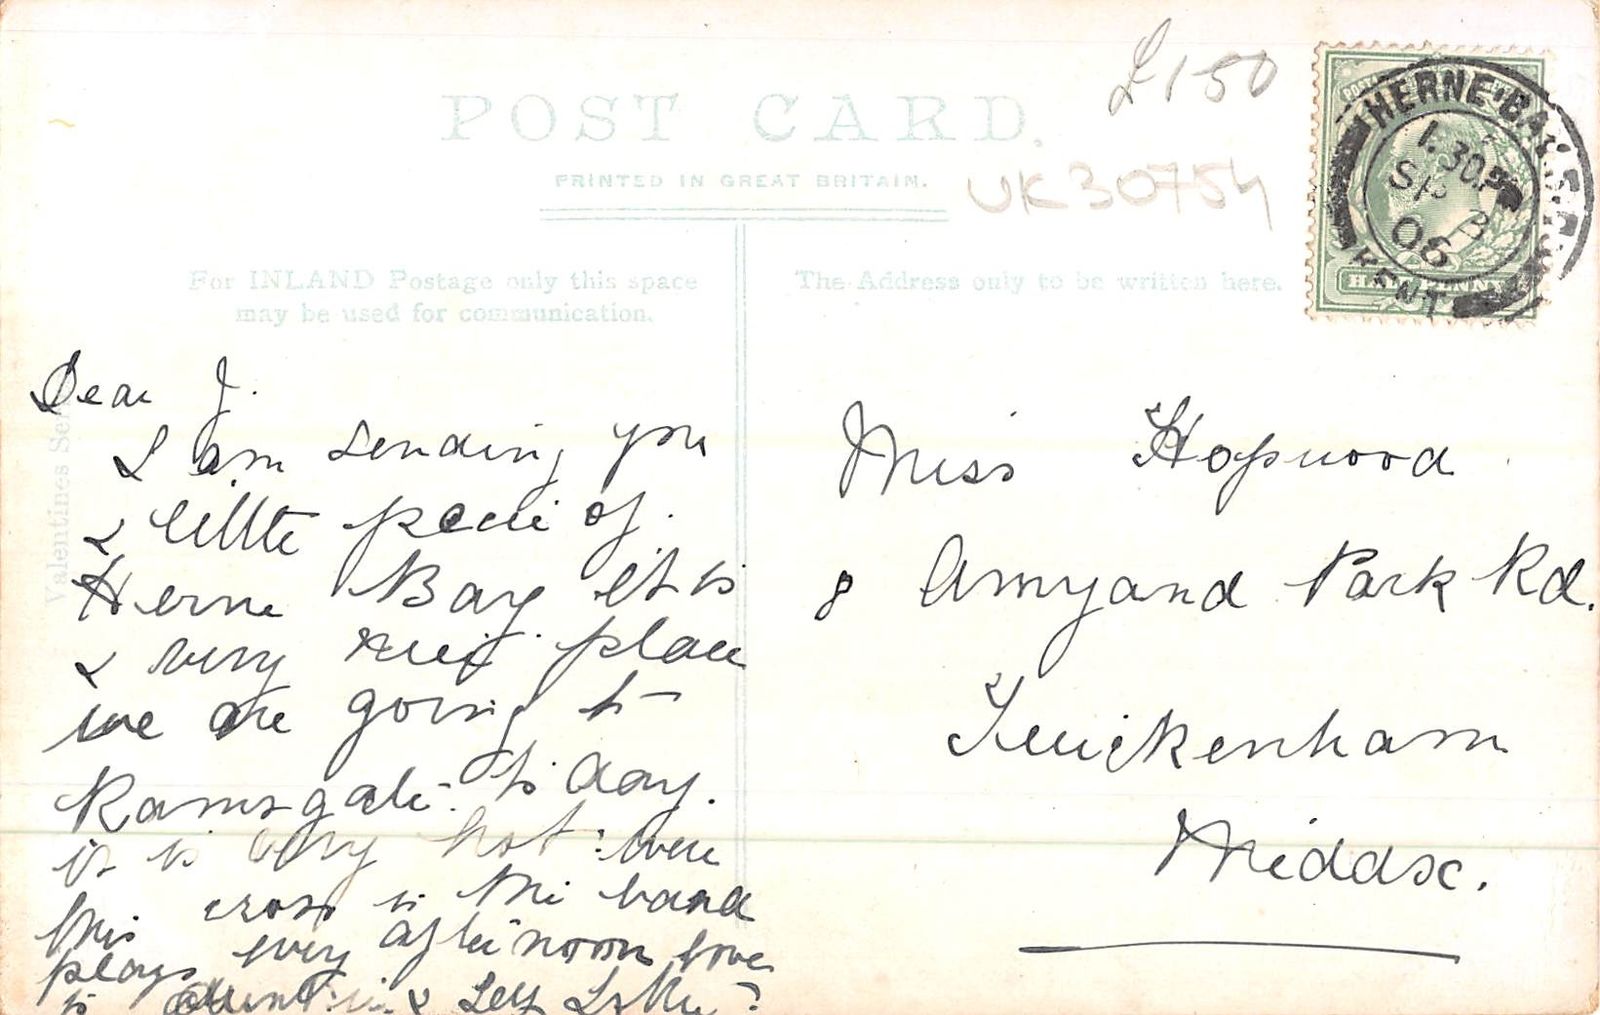 £1-50
POST CARD.
PRINTED IN GREAT BRITAIN.
UK30754
HERNE BAY
1.30P
SP
06
KENT
HALFPENNY
For INLAND Postage only this space
may be used for communication.
The Address only to be written here.
Valentines Series
Dear J.
I am sending you
a little peice of
Herne Bay it is
a very nice place
we are going to
Ramsgate to day.
it is very hot: were
this cross is the band
plays every afternoon love
to & Self
Miss Hopwood
8 Amyand Park Rd.
Twickenham
Middsx.